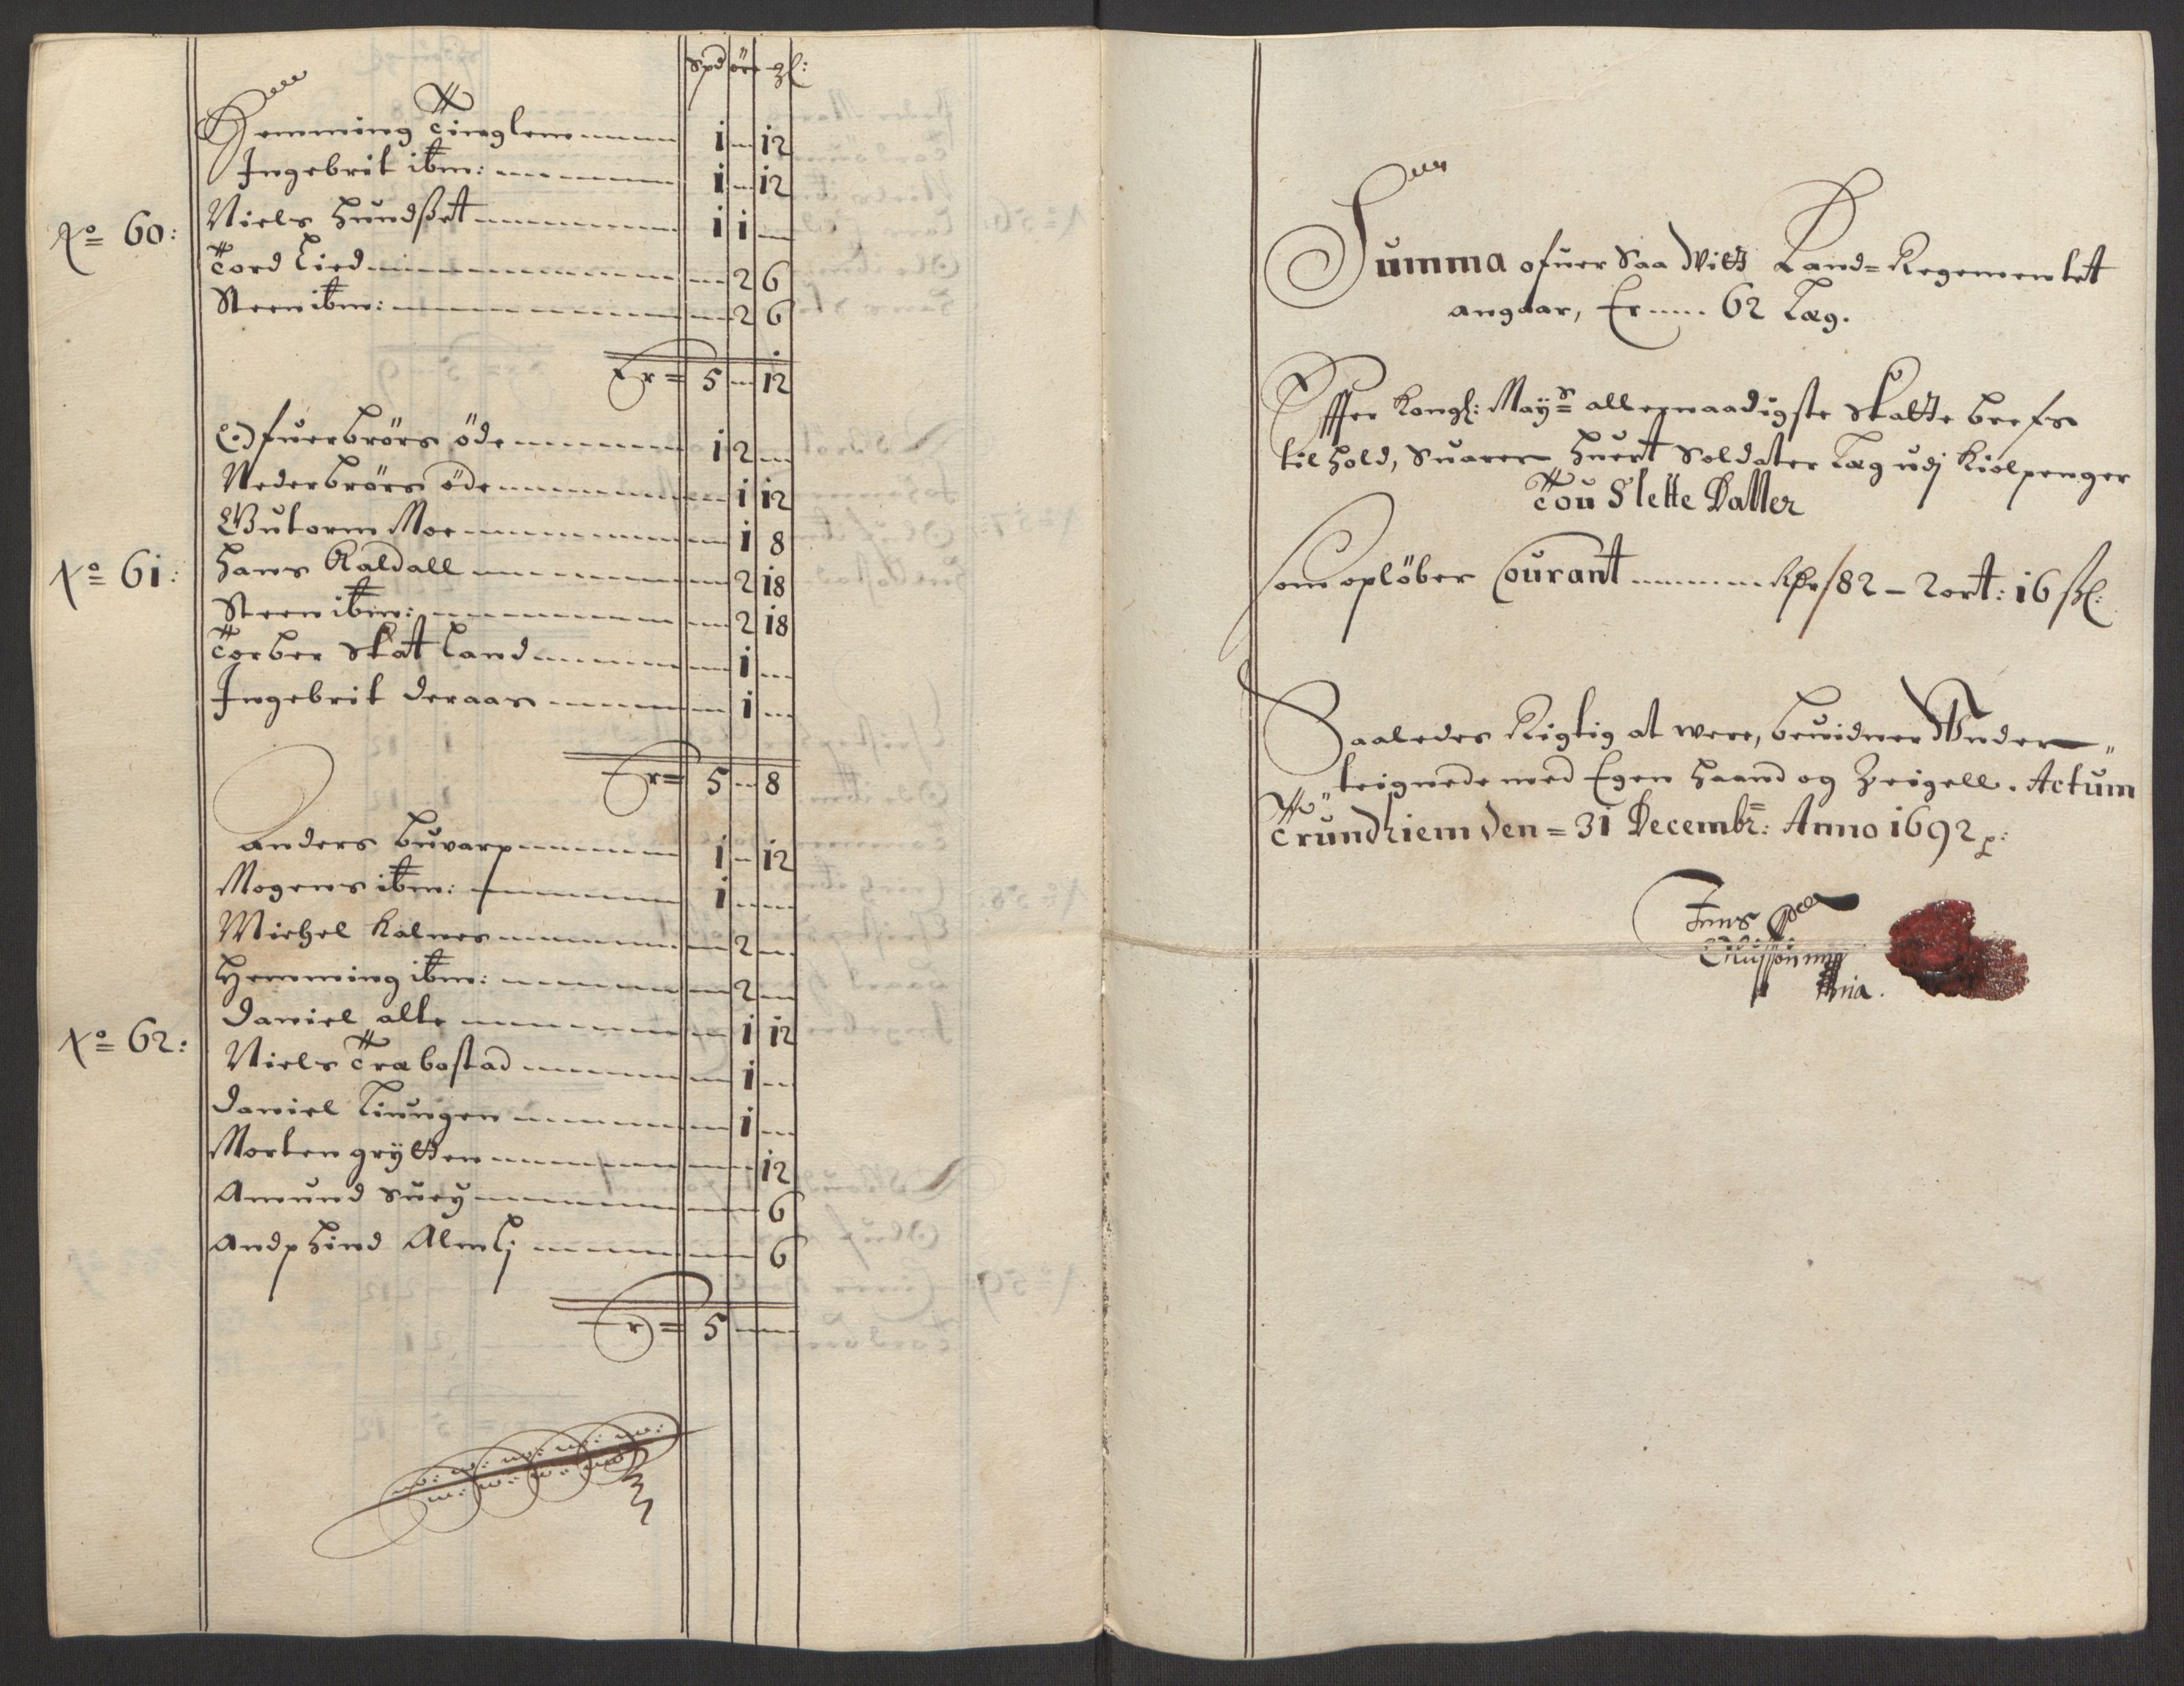 Spd ör ꝫl:
Hemming Tinglem 1 - 12
Ingebrit ibm: 1 - 12
No 60: Niels Hundßet 1 1 -
Tord Lied - 2 6
Steen ibm: - 2 6
Er = 5 - 12
Ofuerbrörs öde 1 2 -
Nederbrörs öde - 1 12
Gutorm Moe - 1 8
No 61: Hans Kaldall - 2 18
Steen ibm: - 2 18
Torber Skatland - 1 -
Ingebrit Deraas - 1 -
Er = 5 - 8
Anders Buvarp 1 - 12
Mogens ibm: 1 - -
Michel Kalnes - 2 -
Hemming ibm: - 2 -
No 62: Daniel alte - 1 12
Niels Træbostad - 1 -
Daniel Liungen - 1 -
Morten grÿtten - - 12
Amund Suey - - 6
Andphind Almlj - - 6
Er = 5 - -
Summa ofuer Saa Vitt Land=Regementet
angaar, Er 62 Læg.
Effter Kongl: Mays allernaadigste Skatte brefs
til hold, Suarer huert Soldater Læg udj Kiolpenger
Tou Slette Daller
som opløber Courant Rdr 82 - 2 ort: 16 ßl:
Saaledes Rigtig at were, beuidner Under-
teignede med Egen Haand og Zeigell. Actum
Trundhiem den = 31 Decembr: Anno 1692 p:
Jens
mppria.